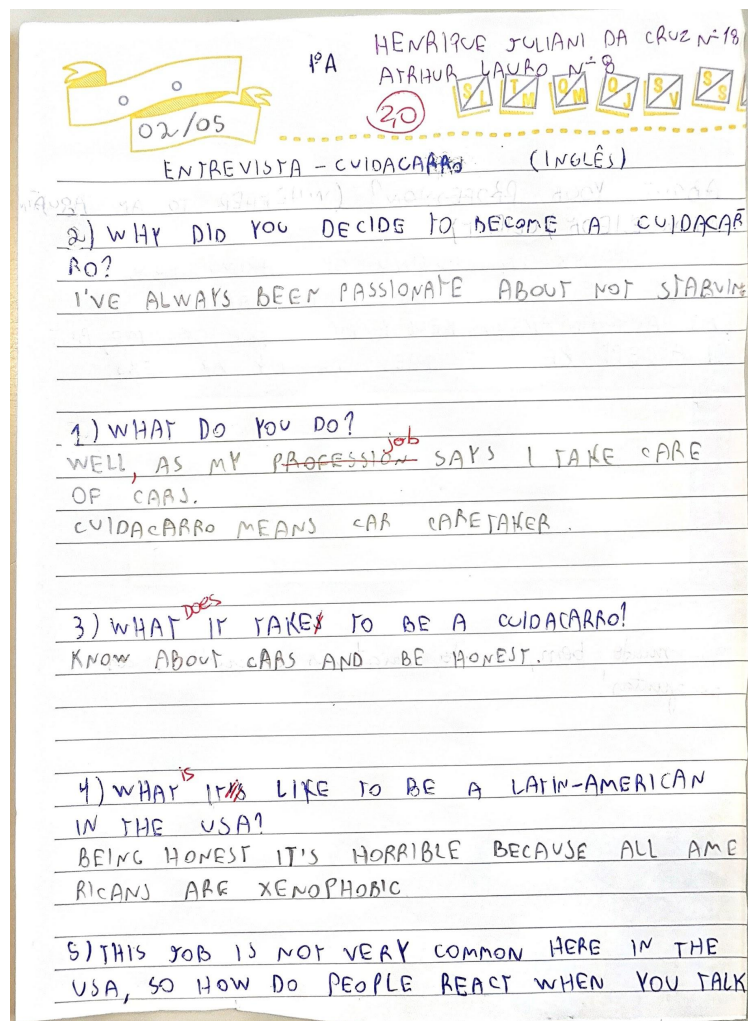 1ºA
HENRIQUE JULIANI DA CRUZ Nº 18
ATRHUR LAURO Nº 8
2,0
S L T M Q M Q J S V S S
02/05
ENTREVISTA - CUIDACARRO (INGLÊS)
2) WHY DID YOU DECIDE TO BECOME A CUIDACAR
RO?
I'VE ALWAYS BEEN PASSIONATE ABOUT NOT STARVIN
1.) WHAT DO YOU DO?
job
WELL, AS MY PROFESSION SAYS I TAKE CARE
OF CARS.
CUIDACARRO MEANS CAR CARETAKER.
DOES
3) WHAT IT TAKES TO BE A CUIDACARRO?
KNOW ABOUT CARS AND BE HONEST.
is
4) WHAT IT'S LIKE TO BE A LATIN-AMERICAN
IN THE USA?
BEING HONEST IT'S HORRIBLE BECAUSE ALL AME
RICANS ARE XENOPHOBIC
5) THIS JOB IS NOT VERY COMMON HERE IN THE
USA, SO HOW DO PEOPLE REACT WHEN YOU TALK